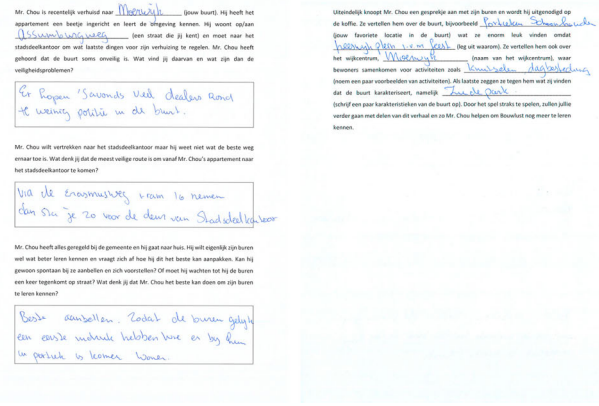 Mr. Chou is recentelijk verhuisd naar Moerwijk (jouw buurt). Hij heeft het
appartement een beetje ingericht en leert de omgeving kennen. Hij woont op/aan
Assumburgweg (een straat die jij kent) en moet naar het
stadsdeelkantoor om wat laatste dingen voor zijn verhuizing te regelen. Mr. Chou heeft
gehoord dat de buurt soms onveilig is. Wat vind jij daarvan en wat zijn dan de
veiligheidsproblemen?
Er lopen 'savonds veel dealers rond
te weinig politie in de buurt.
Mr. Chou wilt vertrekken naar het stadsdeelkantoor maar hij weet niet wat de beste weg
ernaar toe is. Wat denk jij dat de meest veilige route is om vanaf Mr. Chou's appartement naar
het stadsdeelkantoor te komen?
Via de Erasmusweg tram 16 nemen
dan sta je zo voor de deur van Stadsdeelkantoor
Mr. Chou heeft alles geregeld bij de gemeente en hij gaat naar huis. Hij wilt eigenlijk zijn buren
wel wat beter leren kennen en vraagt zich af hoe hij dit het beste kan aanpakken. Kan hij
gewoon spontaan bij ze aanbellen en zich voorstellen? Of moet hij wachten tot hij de buren
een keer tegenkomt op straat? Wat denk jij dat Mr. Chou het beste kan doen om zijn buren
te leren kennen?
Beste aanbellen. Zodat de buren gelijk
een eerste indruk hebben wie er bij hun
in portiek is komen wonen.
Uiteindelijk knoopt Mr. Chou een gesprekje aan met zijn buren en wordt hij uitgenodigd op
de koffie. Ze vertellen hem over de buurt, bijvoorbeeld
(jouw favoriete locatie in de buurt) wat ze enorm leuk vinden omdat
feest (leg uit waarom). Ze vertellen hem ook over
het wijkcentrum, Moerwijk (naam van het wijkcentrum), waar
bewoners samenkomen voor activiteiten zoals knutselen dagbesteding
(noem een paar voorbeelden van activiteiten). Als laatste zeggen ze tegen hem wat zij vinden
dat de buurt karakteriseert, namelijk Zuiderpark
(schrijf een paar karakteristieken van de buurt op). Door het spel straks te spelen, zullen jullie
verder gaan met delen van dit verhaal en zo Mr. Chou helpen om Bouwlust nog meer te leren
kennen.